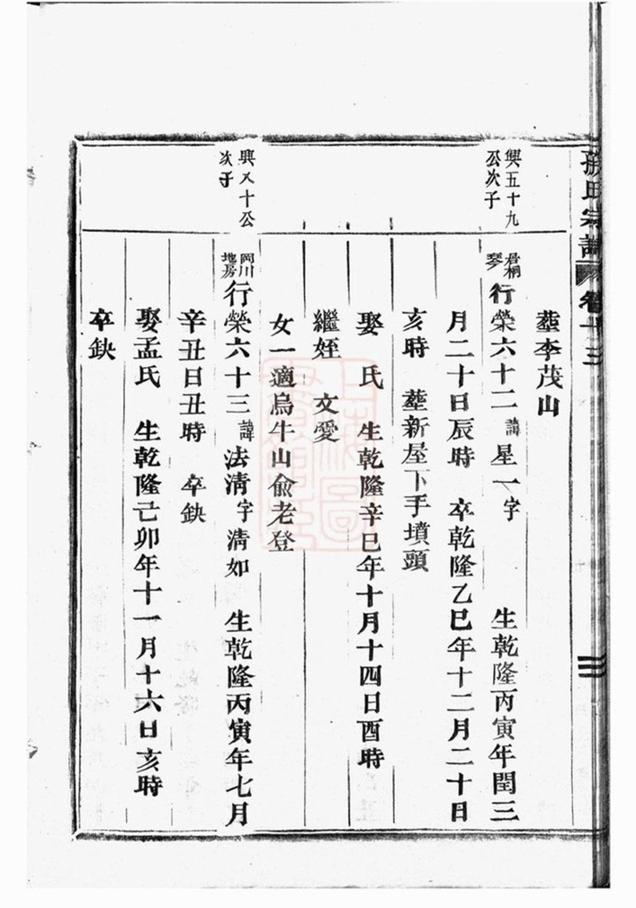 孫氏宗譜 卷十三
三
葬李茂山
興五十九公次子
君桐琴 行榮六十二 諱星一字 生乾隆丙寅年閏三
月二十日辰時 卒乾隆乙巳年十二月二十日
亥時 葬新屋下手墳頭
娶 氏 生乾隆辛巳年十月十四日酉時
繼姪 文愛
女一適烏牛山俞老登
興八十公次子
岡川地房 行榮六十三 諱法淸字淸如 生乾隆丙寅年七月
辛丑日丑時 卒缺
娶孟氏 生乾隆己卯年十一月十六日亥時
卒缺